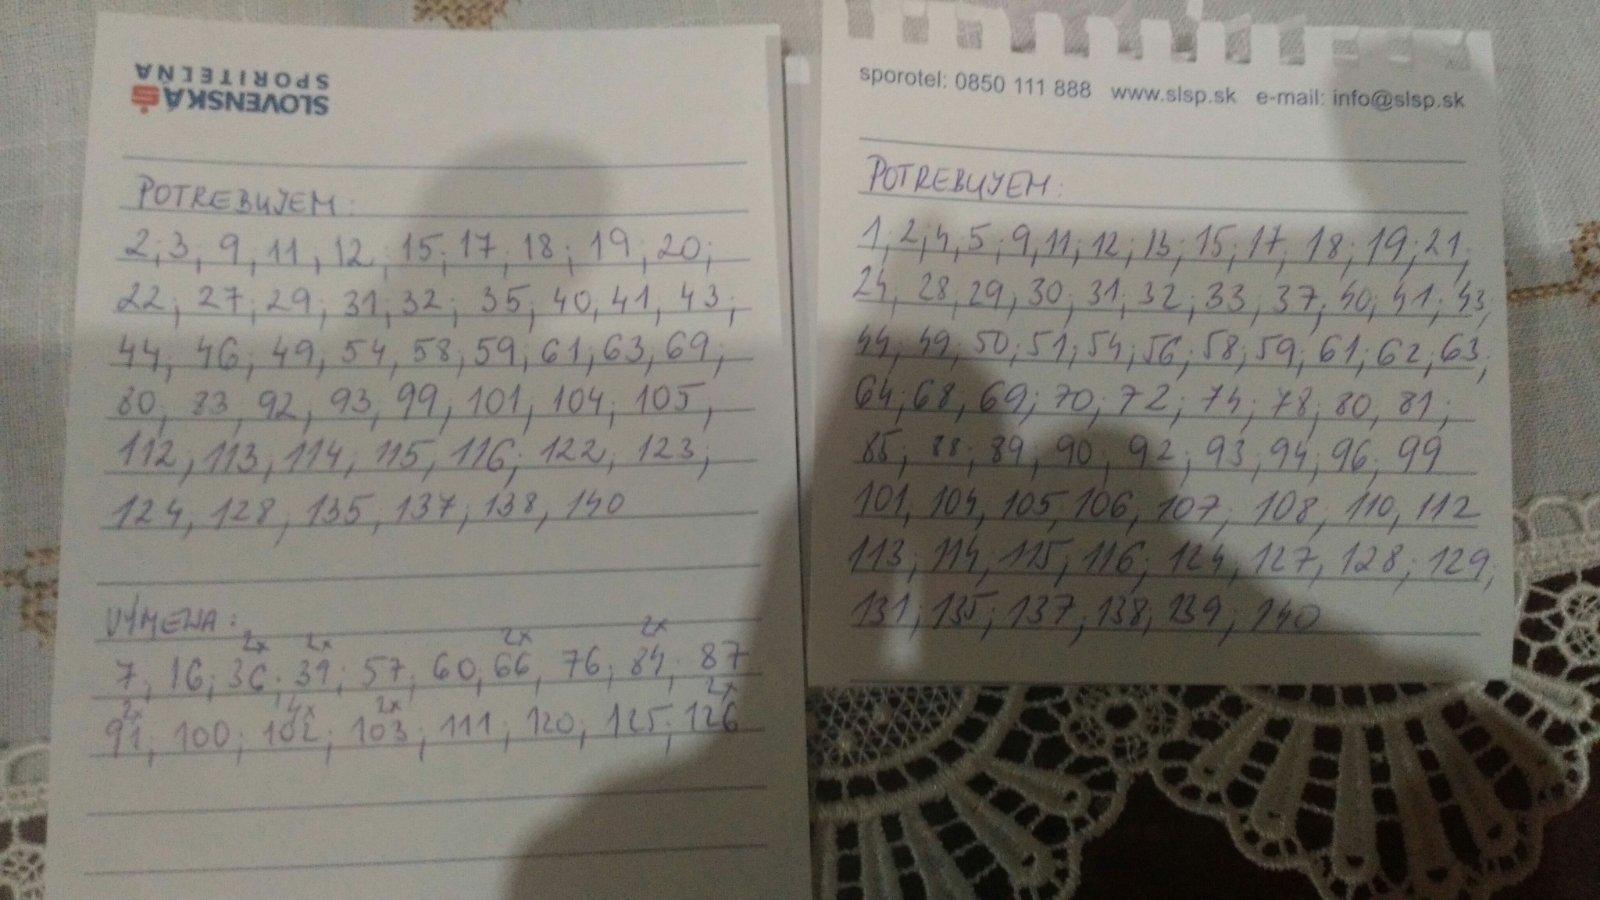 SLOVENSKÁ
SPORITEĽŇA
POTREBUJEM:
2; 3; 9; 11, 12, 15; 17; 18; 19; 20;
22; 27; 29; 31, 32; 35; 40, 41, 43;
44, 46, 49, 54, 58, 59, 61, 63, 69;
80, 83, 92, 93, 99, 101, 104, 105,
112, 113, 114, 115, 116; 122, 123;
124, 128, 135, 137, 138, 140
VÝMENA:
2x 2x 2x 2x
7, 16; 36; 39; 57, 60, 66, 76, 84, 87
2x 4x 2x 2x
91, 100; 102, 103, 111, 120, 125, 126
sporotel: 0850 111 888 www.slsp.sk e-mail: info@slsp.sk
POTREBUJEM:
1, 2, 4, 5, 9, 11, 12, 13, 15, 17, 18, 19, 21,
24, 28, 29, 30, 31, 32, 33, 37, 40, 41, 43,
44, 49, 50, 51, 54, 56, 58, 59, 61, 62, 63,
64, 68, 69, 70, 72, 74, 78, 80, 81,
85, 88, 89, 90, 92, 93, 94, 96, 99
101, 104, 105, 106, 107, 108, 110, 112
113, 114, 115, 116, 124, 127, 128, 129,
131, 135, 137, 138, 139, 140